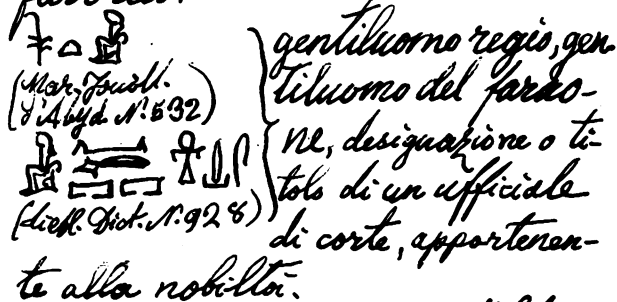 (Mar, Fouill.
d'Abyd. N.° 532)
(Liebl. Dict. N. 928)
gentiluomo regio, gen
tiluomo del farao-
ne, designazione o ti-
tolo di un ufficiale
di corte, appartenen-
te alla nobiltà.